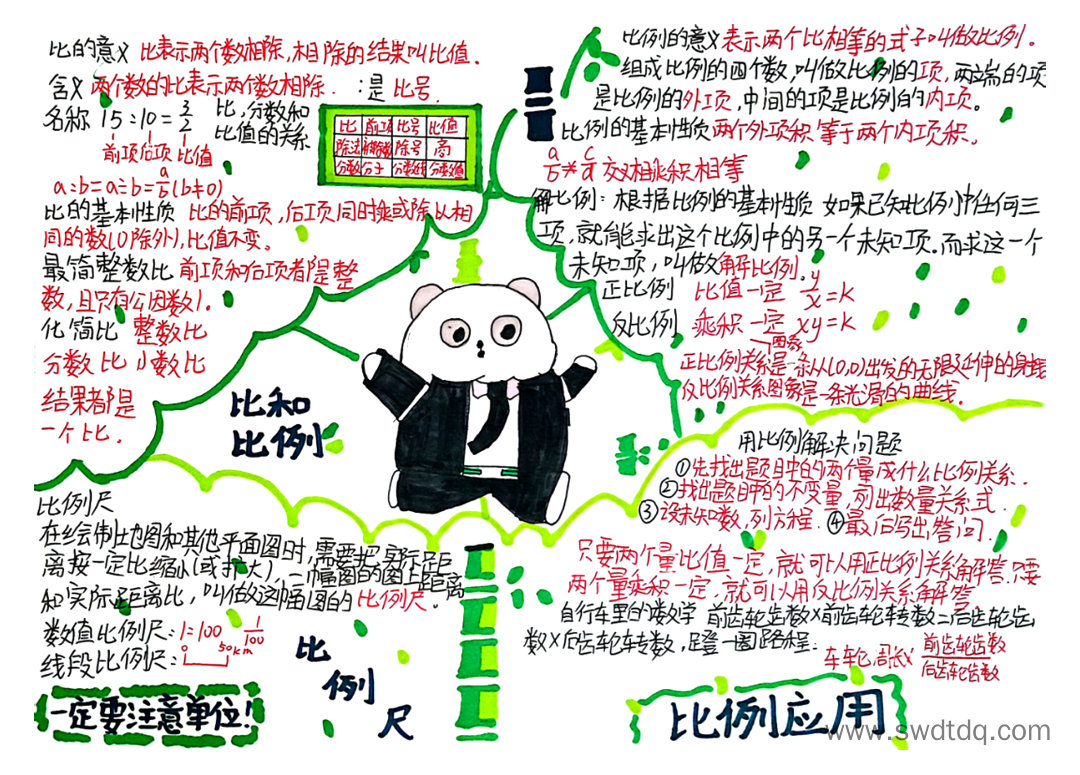 比的意义 比表示两个数相除,相除的结果叫比值.
含义 两个数的比表示两个数相除. :是 比号.
名称 15:10=3/2
前项 后项 比值
比,分数和
比值的关系
比 前项 比号 比值
除法 被除数 除号 商
分数 分子 分数线 分数值
a:b=a÷b=a/b(b≠0)
比的基本性质 比的前项,后项同时乘或除以相
同的数(0除外),比值不变。
最简整数比 前项和后项都是整
数,且只有公因数1.
化简比 整数比
分数比 小数比
结果都是
一个比.
比和
比例
比例的意义 表示两个比相等的式子叫做比例.
组成比例的四个数,叫做比例的项,两端的项
是比例的外项,中间的项是比例的内项。
比例的基本性质 两个外项积等于两个内项积.
交叉相乘积相等
解比例:根据比例的基本性质 如果已知比例中任何三
项,就能求出这个比例中的另一个未知项。而求这一个
未知项,叫做解比例。
正比例 比值一定 y/x=k
反比例 乘积一定 xy=k
图象
正比例关系是一条从(0,0)出发的无限延伸的射线
反比例关系图象是一条光滑的曲线.
用比例解决问题
①先找出题目中的两个量成什么比例关系.
②找出题中的不变量,列出数量关系式.
③设未知数,列方程. ④最后写出答语.
只要两个量比值一定,就可以用正比例关系解答.只要
两个量乘积一定,就可以用反比例关系解答
自行车里的数学 前齿轮齿数×前齿轮转数=后齿轮齿
数×后齿轮转数,蹬一圈路程:
车轮周长× 前齿轮齿数/后齿轮齿数
比例应用
比例尺
在绘制地图和其他平面图时,需要把实际距
离按一定比缩小(或扩大),一幅图的图上距离
和实际距离比,叫做这幅图的比例尺。
数值比例尺:1:100 1/100
线段比例尺: 0 50km
一定要注意单位!
比
例
尺
www.swdtdq.com